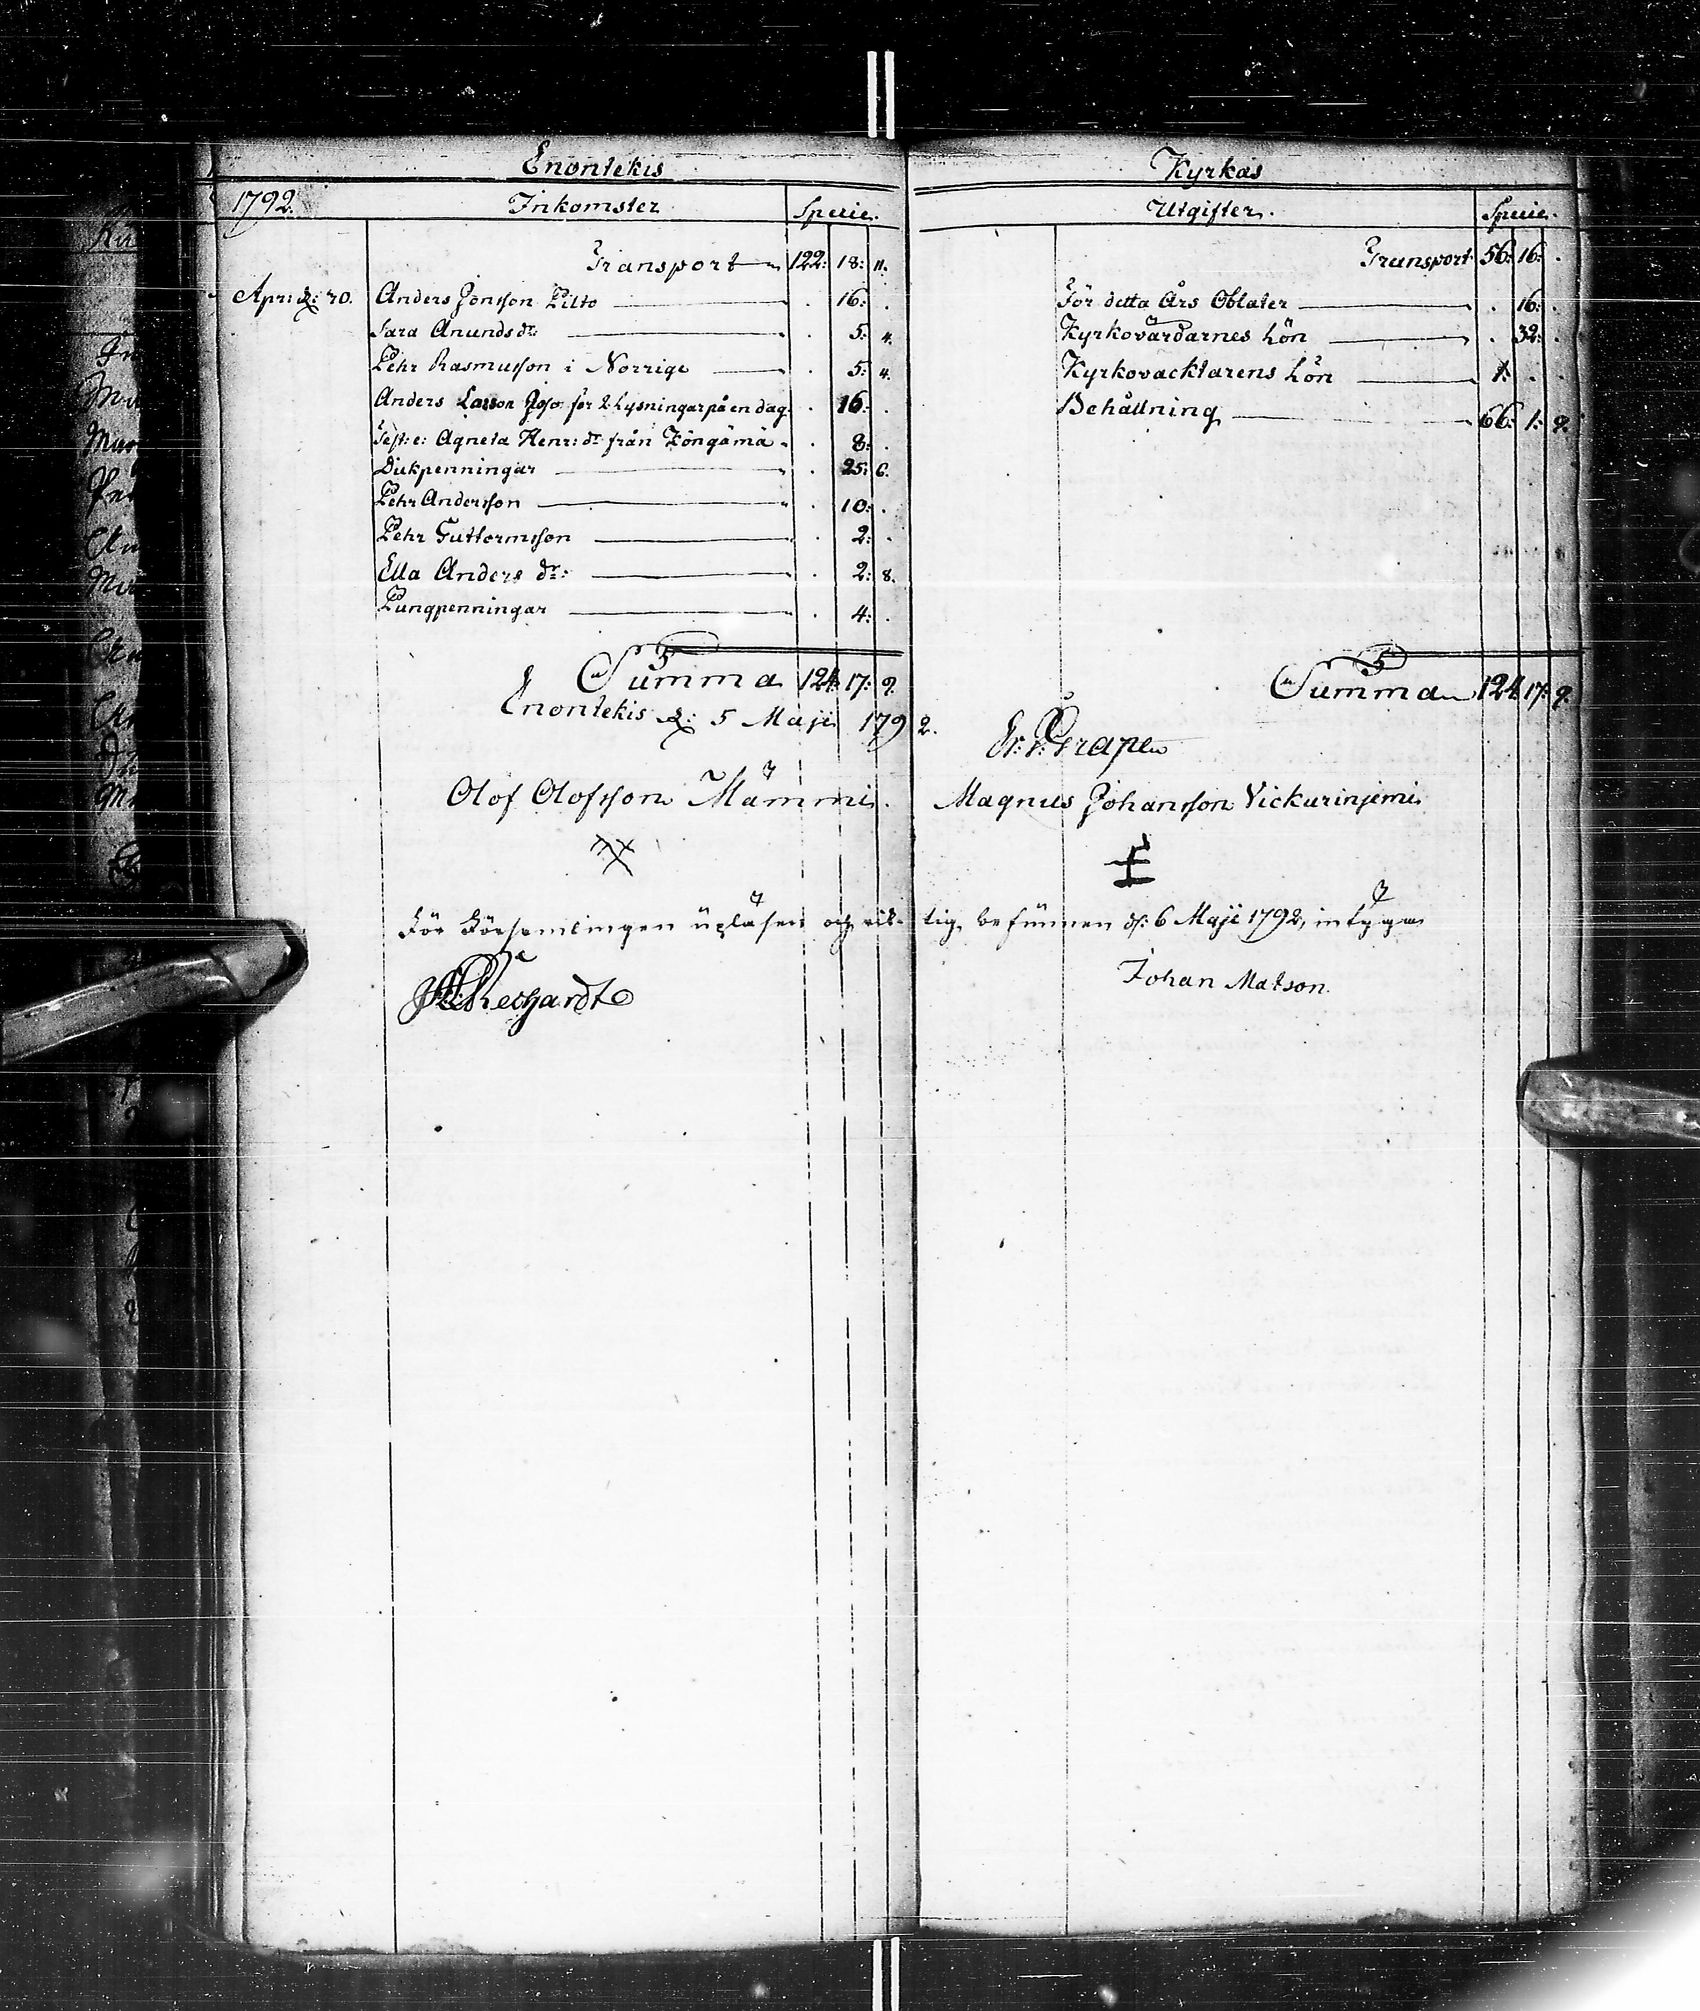 Enontekis
1792. Inkomster Specie.
Transport 122: 18: 11.
Apr: d: 20. Anders Jonsson Pilto . 16: .
Sara Anunds dr . 5: 4.
Pehr Rasmusson i Norrige . 5: 4.
Anders Larsson Joso för 2 Lysningar på en dag . 16: .
Test: e: Agneta Henr: dr från Köngämä . 8: .
Diukpenningar . 25: 6.
Pehr Andersson . 10: .
Pehr Guttormsson . 2: .
Ella Anders dr: . 2: 8.
Pungpenningar . 4: .
Summa 124: 17: 9.
Kyrkas
Utgifter. Specie.
Transport 56: 16: .
För detta Års Oblater . 16: .
Kyrkovärdarnes Lön . 32: .
Kyrkovacktarens Lön 1: . .
Behållning 66: 1: 9.
Summa 124 17: 9.
Enontekis d: 5 Maji 1792.
Er: J: Grape
Olof Olofsson Mämmi. Magnus Johansson Vickurinjemi
För Församlingen upläsen och riktig befunnen d: 6 Maji 1792, intyga
Johan Matson.